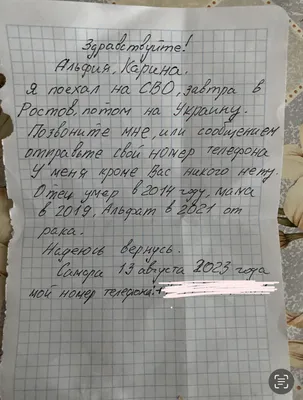 Здравствуйте!
Альфия, Карина.
Я поехал на СВО, завтра в
Ростов, потом на Украину.
Позвоните мне, или сообщением
отправьте свой номер телефона
У меня кроме Вас никого нету.
Отец умер в 2014 году, мама
в 2019, Альфат в 2021 от
рака.
Надеюсь вернусь.
Самара 13 августа 2023 года
мой номер телефона: